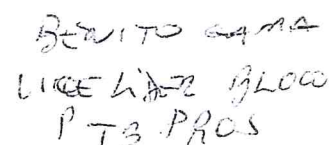 BENITO GAMA
VICE LÍDER BLOCO
PTB PROS